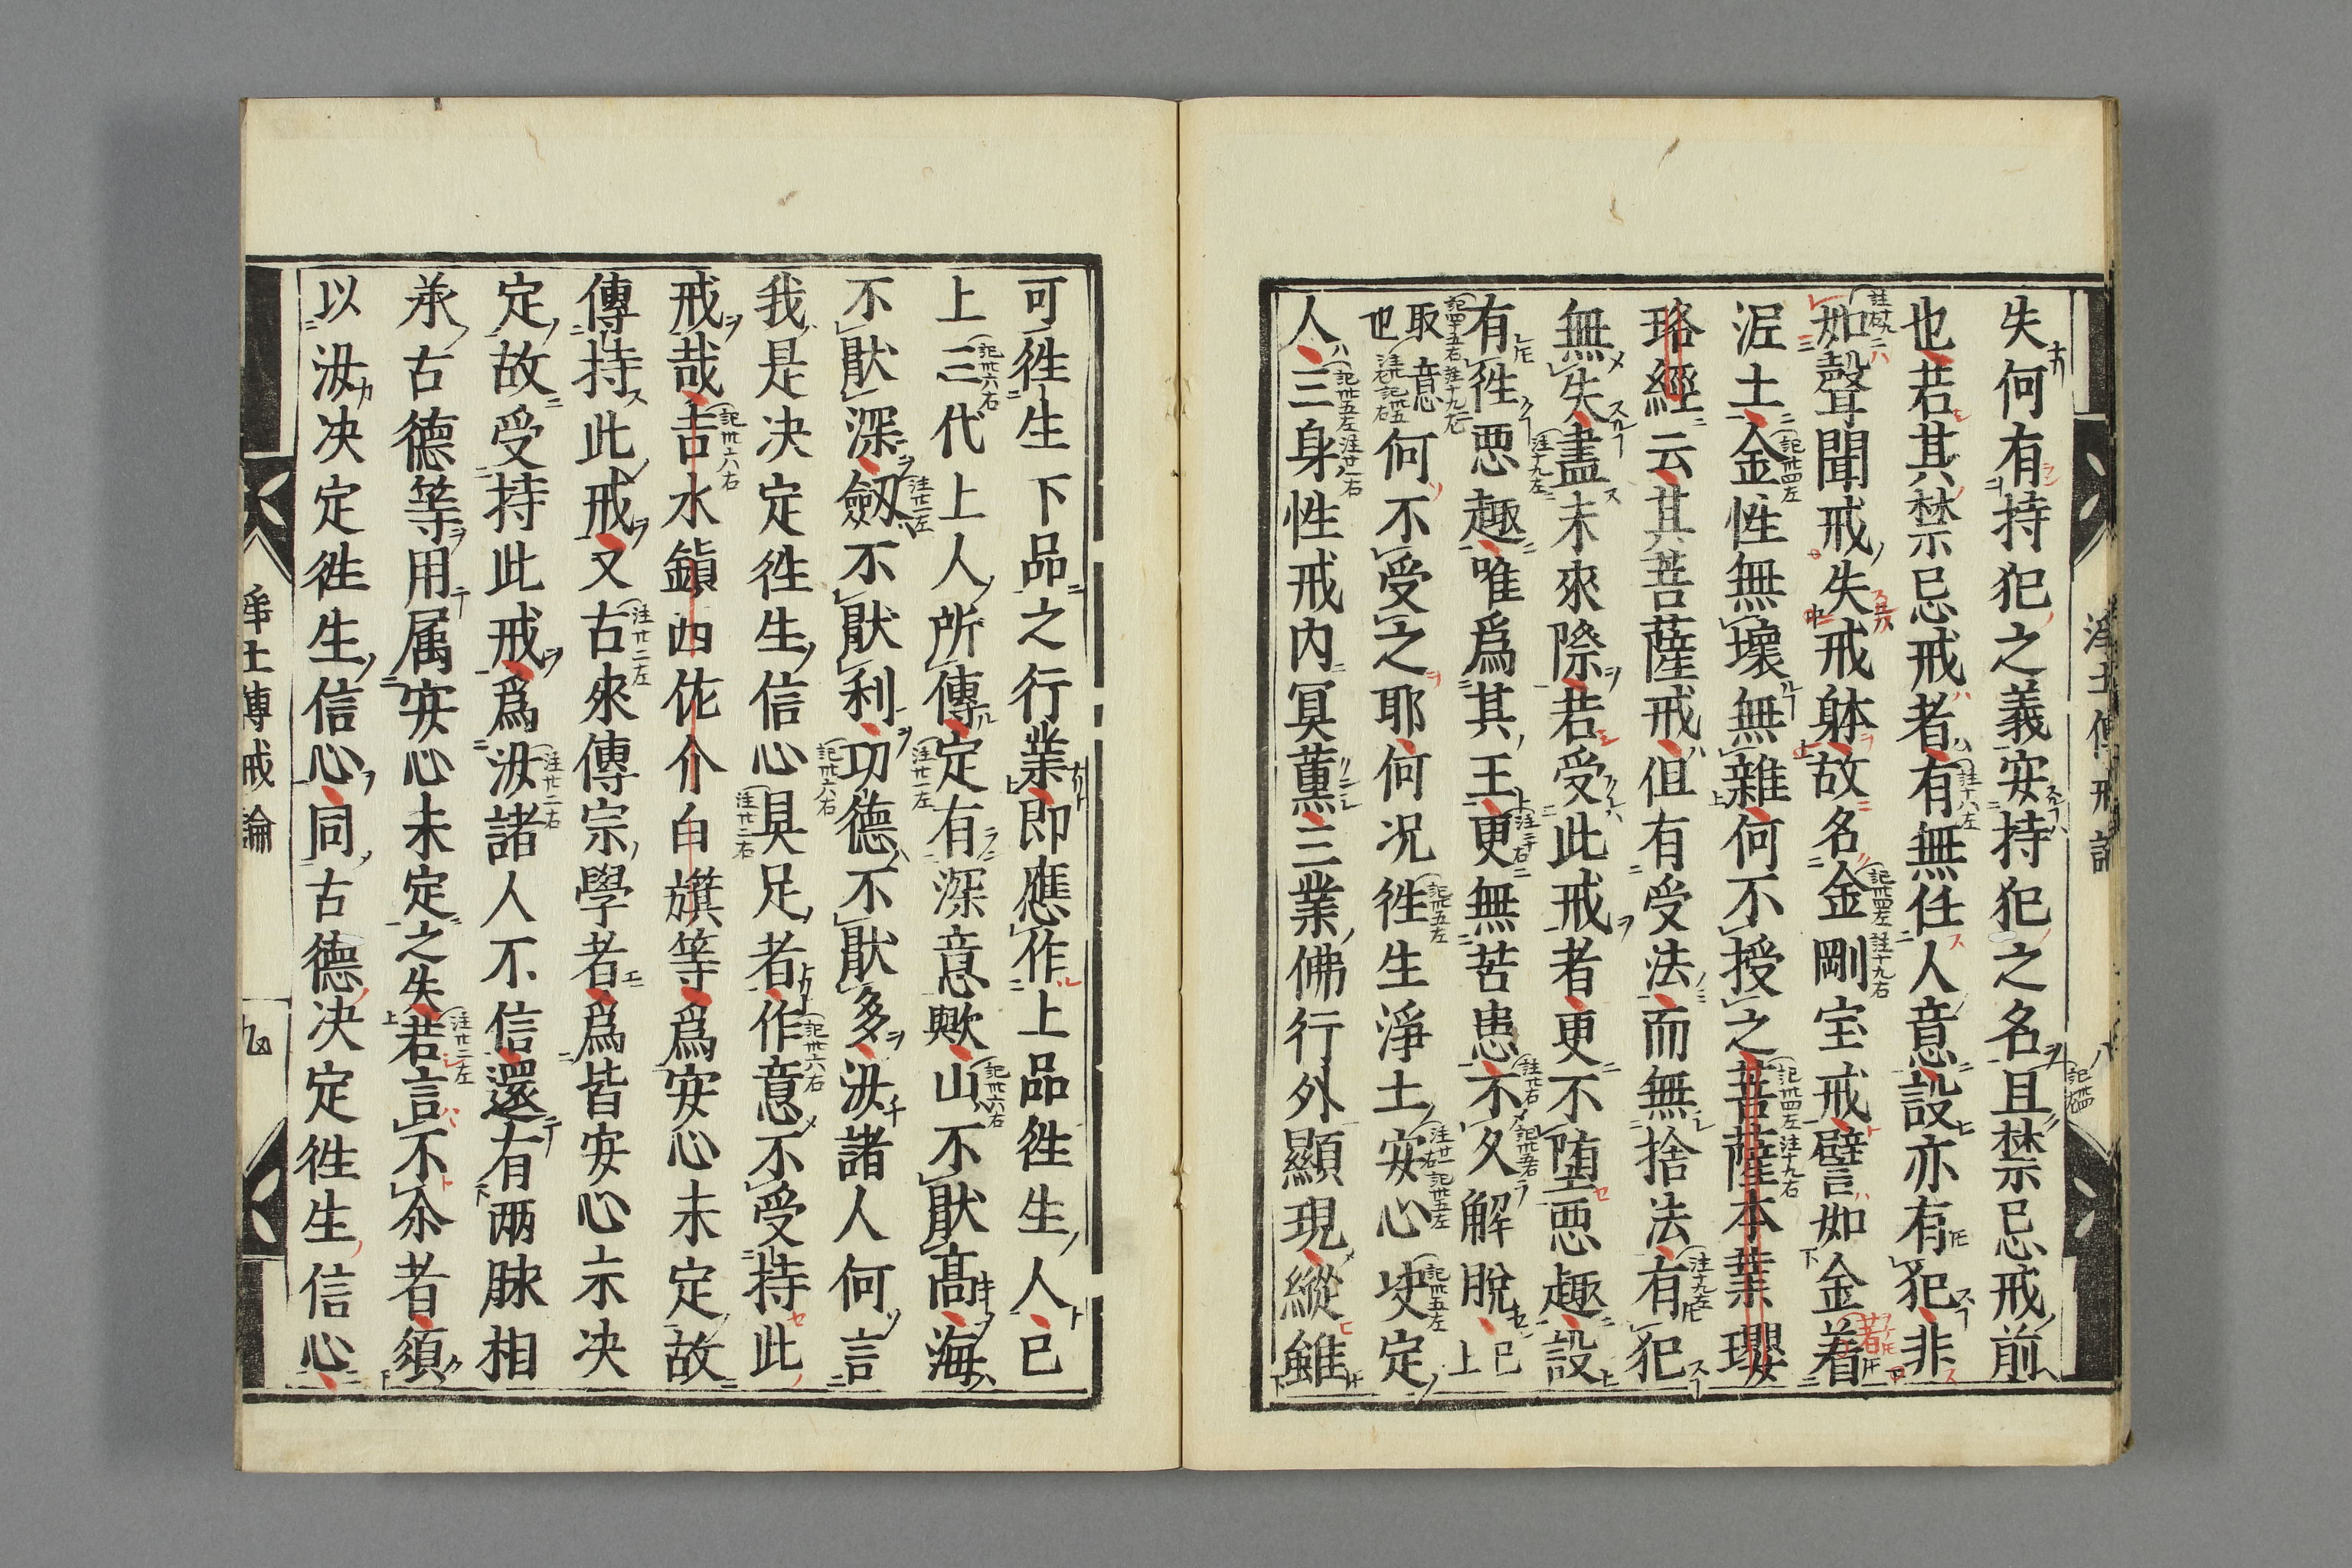 失何有持犯之義安持犯之名且禁忌戒前
也若其禁忌戒者有無任人意設亦有犯非
如聲聞戒失戒躰故名金剛宝戒譬如金着
泥土金性無壞無雜何不授之菩薩本業瓔
珞經云其菩薩戒但有受法而無捨法有犯
無失盡未來際若受此戒者更不堕悪趣設
有徃悪趣唯爲其王更無苦患不久解脫已上
取意也何不受之耶何况徃生淨土安心决定
人三身性戒内冥薫三業佛行外顯現縱雖
可徃生下品之行業即應作上品徃生人已
上三代上人所傳定有深意歟山不猒髙海
不猒深劔不猒利功德不猒多汝諸人何言
我是决定徃生信心具足者作意不受持此
戒哉吉水鎭西佐介白旗等爲安心未定故
傳持此戒又古來傳宗學者爲皆安心未决
定故受持此戒爲汝諸人不信還有兩脉相
承古德等用属安心未定之失若言不尒者須
以汝决定徃生信心同古德决定徃生信心
淨土傳戒論
九